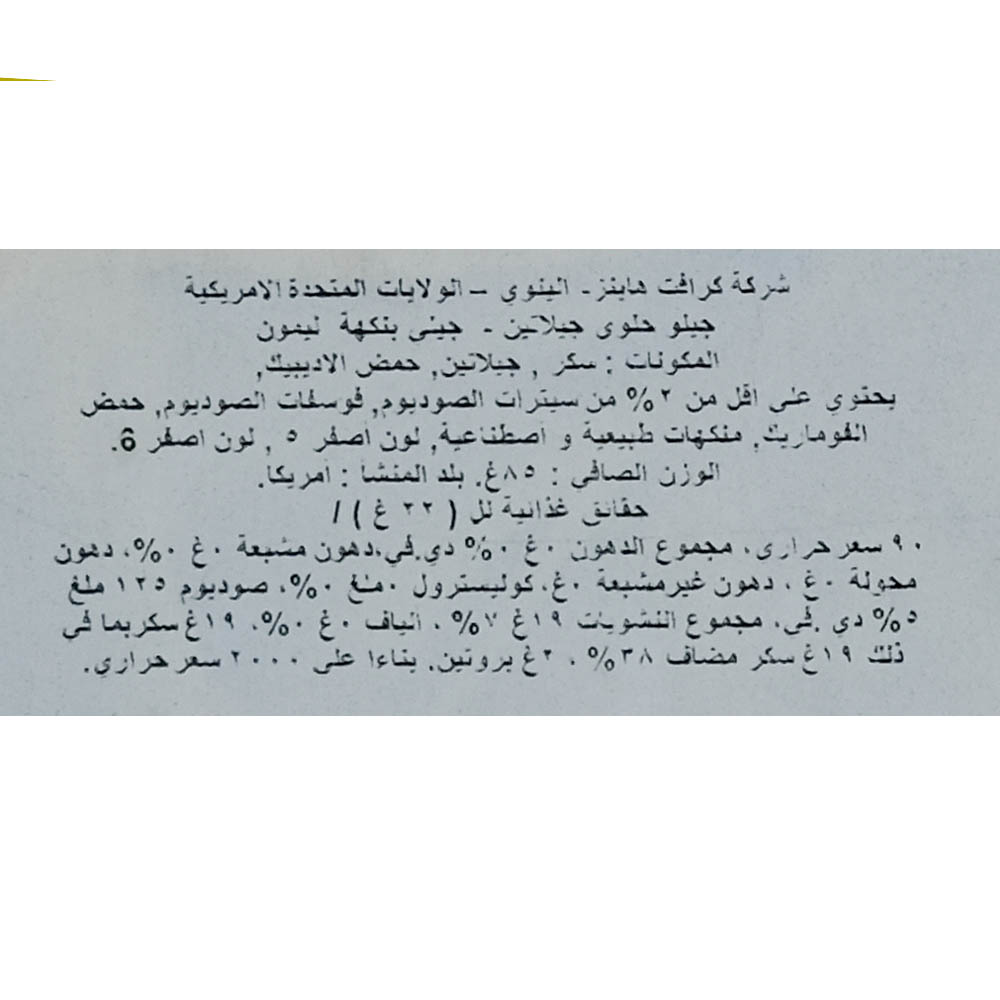 شركة كرافت هاينز - الينوي – الولايات المتحدة الامريكية
جيلو حلوى جيلاتين - جيلي بنكهة ليمون
المكونات : سكر , جيلاتين, حمض الاديبيك,
يحتوي على اقل من ٢% من سيترات الصوديوم, فوسفات الصوديوم, حمض
الفوماريك, منكهات طبيعية و اصطناعية, لون أصفر ٥ , لون اصفر 6.
الوزن الصافي : ٨٥غ. بلد المنشأ : امريكا.
حقائق غذائية لل ( ٢٢ غ ) /
٩٠ سعر حراري، مجموع الدهون ٠غ ٠% دي.في،دهون مشبعة ٠غ ٠%، دهون
محولة ٠غ ، دهون غيرمشبعة ٠غ، كوليسترول ٠ملغ ٠%، صوديوم ١٢٥ ملغ
٥% دي .في، مجموع النشويات ١٩غ ٧% ، الياف ٠غ ٠%، ١٩غ سكربما في
ذلك ١٩غ سكر مضاف ٣٨% ، ٢غ بروتين. بناءا على ٢٠٠٠ سعر حراري.